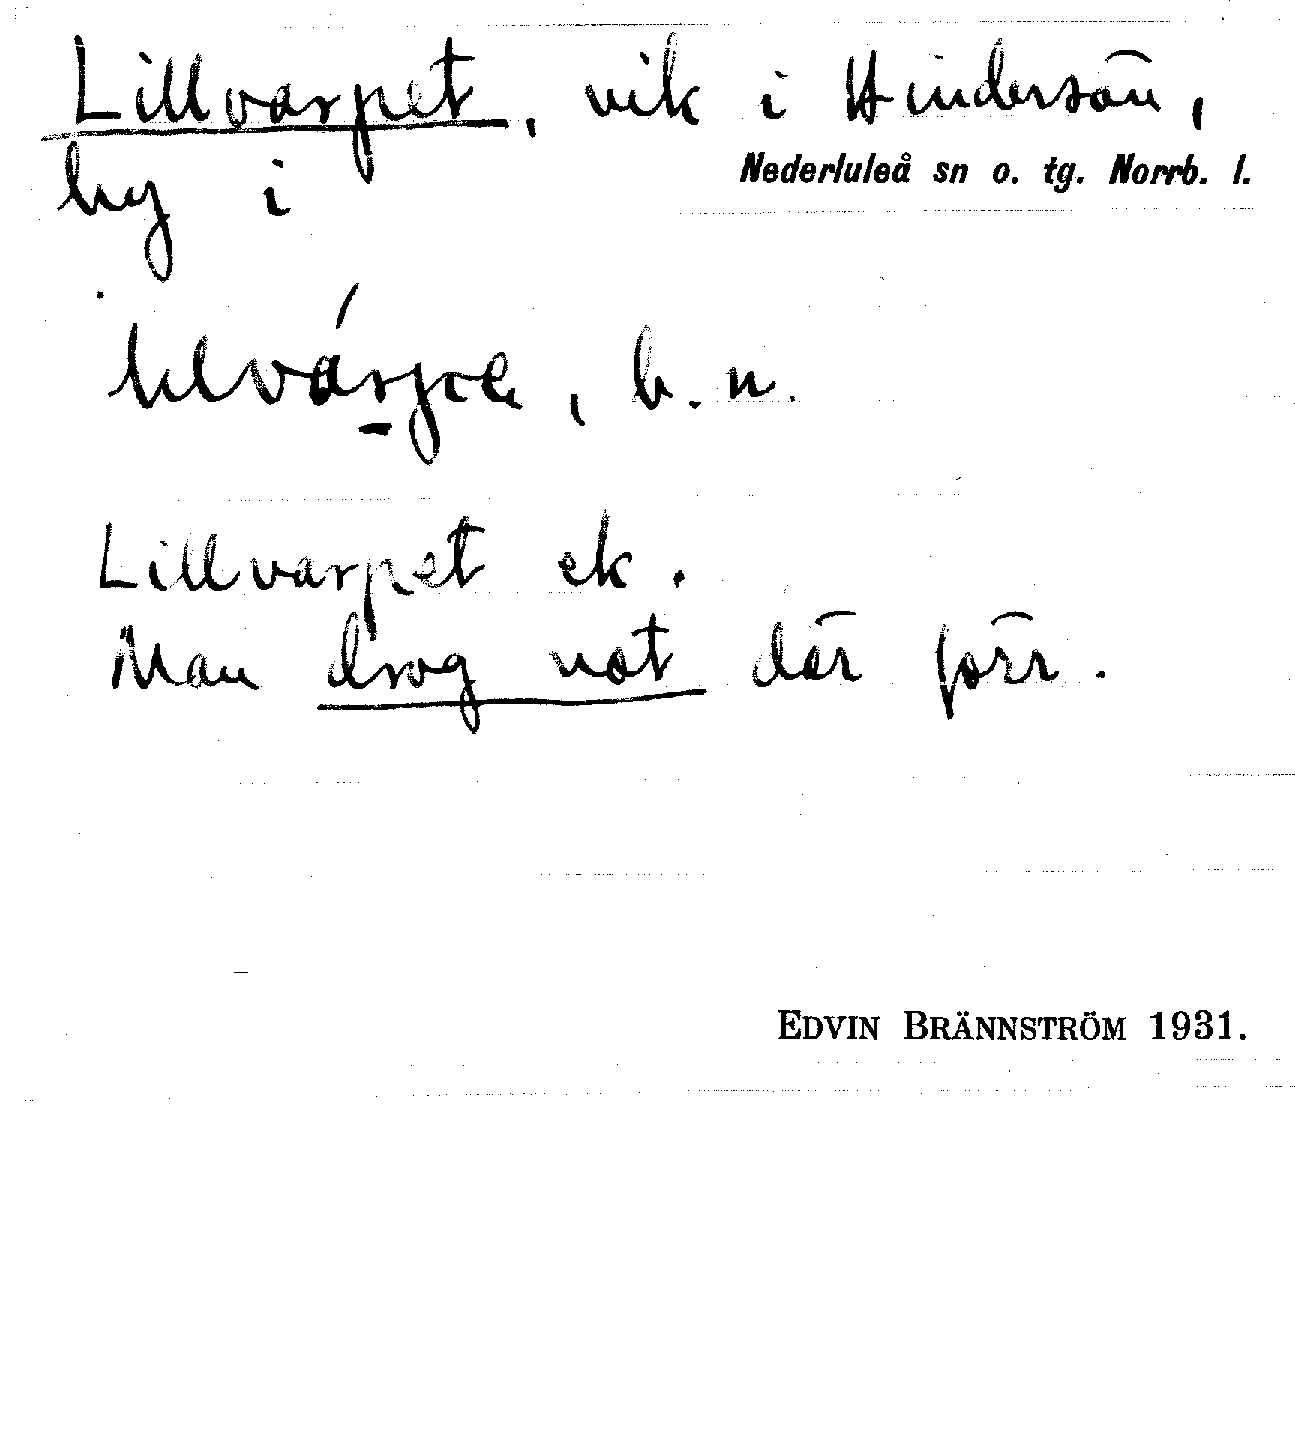 Lillvarpet, vik i Hindersön,
by i Nederluleå sn o. tg. Norrb. l.
b. n.
Lillvarpet ek.
Man drog not där förr.
EDVIN BRÄNNSTRÖM 1931.